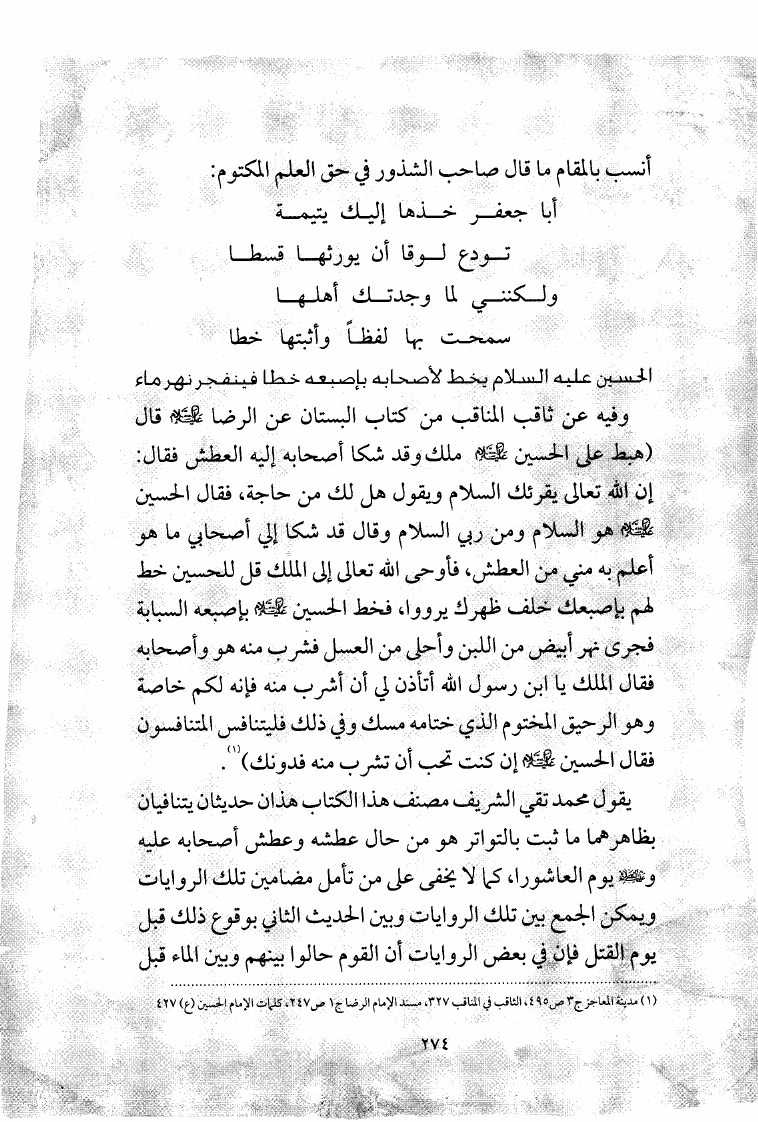 أنسب بالمقام ما قال صاحب الشذور في حق العلم المكتوم:
أبا جعفر خذها إليك يتيمة
تودع لوقا أن يورثها قسطا
ولكنني لما وجدتك أهلها
سمحت بها لفظاً وأثبتها خطا
الحسين عليه السلام يخط لأصحابه بإصبعه خطا فينفجر نهر ماء
وفيه عن ثاقب المناقب من كتاب البستان عن الرضا عليه السلام قال
(هبط على الحسين عليه السلام ملك وقد شكا أصحابه إليه العطش فقال:
إن الله تعالى يقرئك السلام ويقول هل لك من حاجة، فقال الحسين
عليه السلام هو السلام ومن ربي السلام وقال قد شكا إلي أصحابي ما هو
أعلم به مني من العطش، فأوحى الله تعالى إلى الملك قل للحسين خط
لهم بإصبعك خلف ظهرك يرووا، فخط الحسين عليه السلام بإصبعه السبابة
فجرى نهر أبيض من اللبن وأحلى من العسل فشرب منه هو وأصحابه
فقال الملك يا ابن رسول الله أتأذن لي أن أشرب منه فإنه لكم خاصة
وهو الرحيق المختوم الذي ختامه مسك وفي ذلك فليتنافس المتنافسون
فقال الحسين عليه السلام إن كنت تحب أن تشرب منه فدونك)(١).
يقول محمد تقي الشريف مصنف هذا الكتاب هذان حديثان يتنافيان
بظاهرهما ما ثبت بالتواتر هو من حال عطشه وعطش أصحابه عليه
و يوم العاشورا، كما لا يخفى على من تأمل مضامين تلك الروايات
ويمكن الجمع بين تلك الروايات وبين الحديث الثاني بوقوع ذلك قبل
يوم القتل فإن في بعض الروايات أن القوم حالوا بينهم وبين الماء قبل
(١) مدينة المعاجز ج٣ ص٤٩٥، الثاقب في المناقب ٣٢٧، مسند الإمام الرضا ج١ ص٢٤٧، كلمات الإمام الحسين (ع) ٤٢٧
٢٧٤